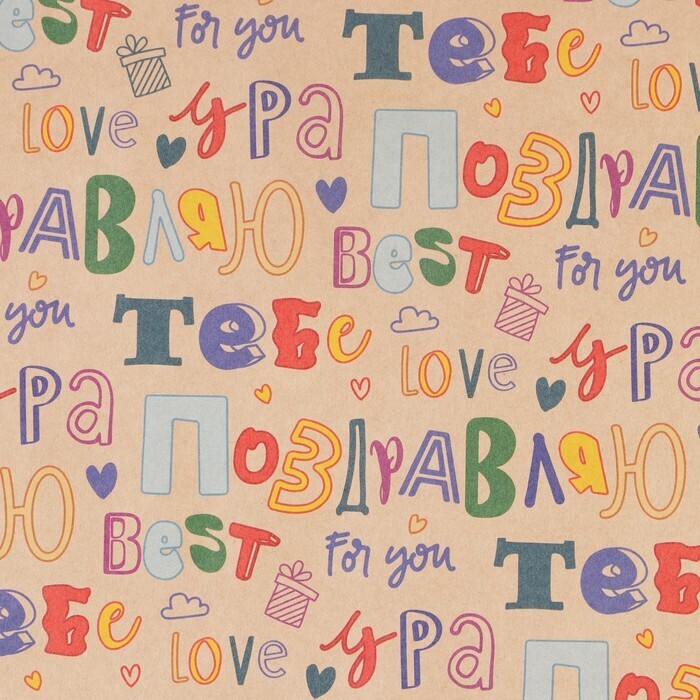 est For you Тебе
Love ура Lov
Поздра
равляю Best For you
you Тебе Love ура
ура Поздравляю
Ю Best For you Тебе
ебе Love ура П